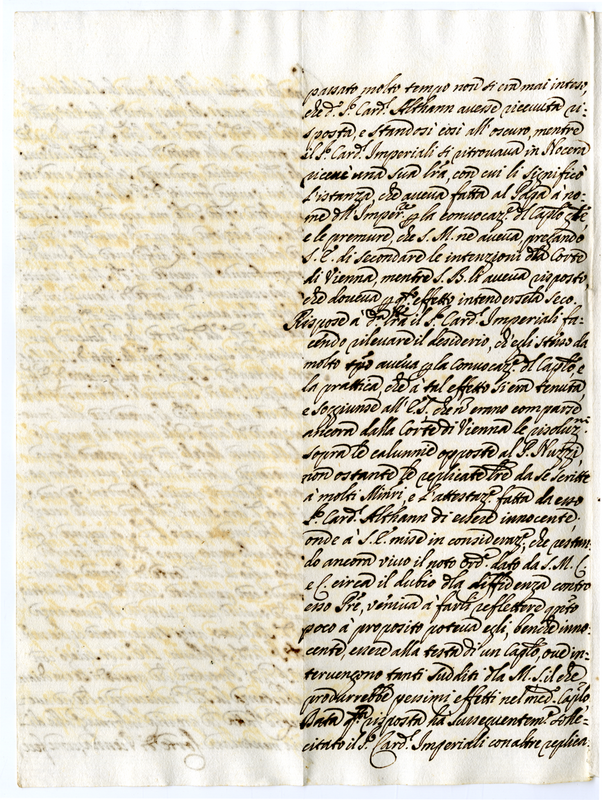 passato molto tempo non si era mai inteso,
che d.º S.r Card.l Althann avesse ricevuta ri-
sposta, e standosi così all'oscuro, mentre
il S.r Card.l Imperiali si ritrovava in Nocera
una sua lrã, con cui li significò
l'istanza, che aveva fatta al Papa à no-
me dell'Imper.e la convocaz.e del Caplo
e le premure, che S. M. ne aveva, pregando
S. E. di secondare le intenzioni dla Corte
di Vienna, mentre S. B. li aveva risposto
che doveva effetto intendersela seco.
Rispose à d.ª lrã il S.r Card.l Imperiali fa-
cendo rilevare il desiderio, ch'egli stesso da
molto tpõ aveva la Convocaz.e del Caplo, e
la prattica, che à tal effetto si era tenuta,
e soggiunse all' che ñ erano comparse
ancora dalla Corte di Vienna le risoluz.ni
sopra le calunnie opposte al P. Nuzzi
non ostante le replicate lrẽ da se scritte
à molti Minri, e l'attestaz.e fatta da esso
S.r Card.l Althann di essere innocente,
onde à S. E. mise in consideraz.e, che restan-
do ancora vivo il noto ord.e dato da S. M. C.
e C. circa il dubio dla diffidenza contro
esso Pre, veniva à farli reflettere qnto
poco à proposito poteva egli, benche inno-
cente, essere alla testa di un Caplo, ove in-
tervengono tanti sudditi dla M. S. il che
produrrebbe pessimi effetti nel med.º Caplo
Data qsta risposta hà susseguentem.e solle-
citato il S.r Card.l Imperiali con altre replica-